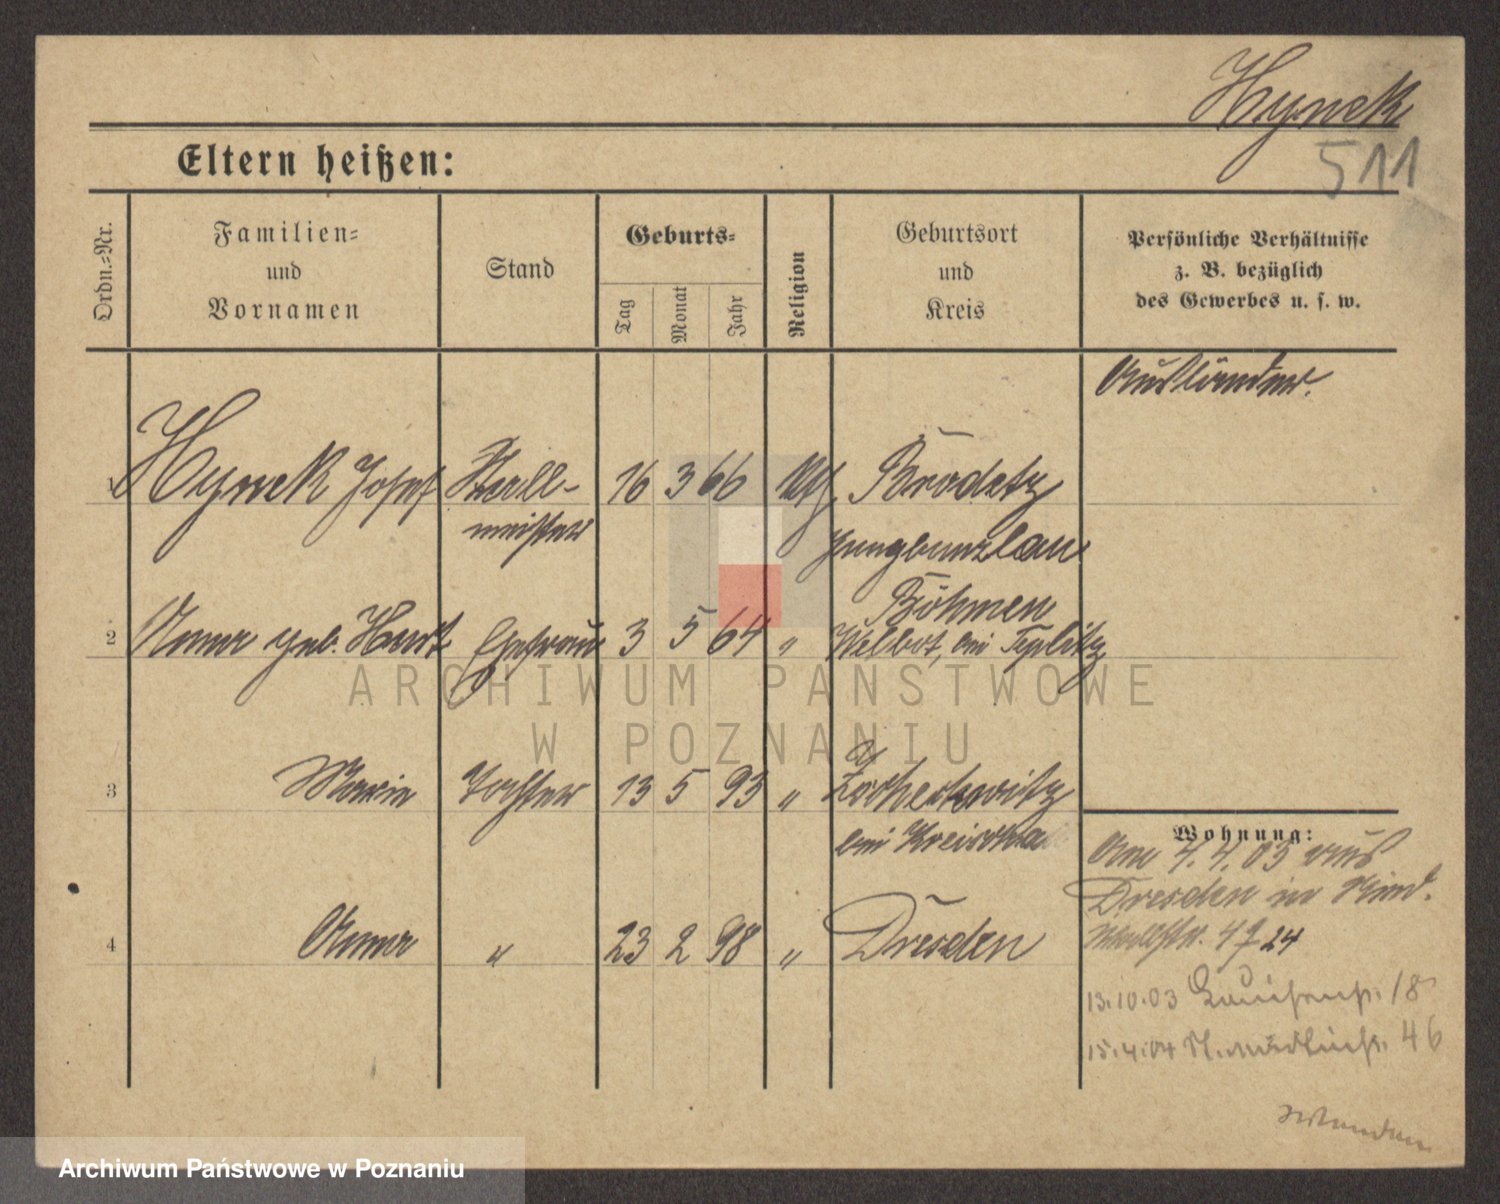 Hynek
511
Eltern heißen:
Ordn.=Nr.
Familien=
und
Vornamen
Stand
Geburts=
Tag
Monat
Jahr
Religion
Geburtsort
und
Kreis
Persönliche Verhältnisse
z. B. bezüglich
des Gewerbes u. s. w.
Ausländer.
1 Hynek Josef Stall- 16 3 66 Kth. Brodetz
meister Jungbunzlau
Böhmen
2 Anna geb. Hart Ehefrau 3 5 64 " Welbot, bei Teplitz
3 Marie Tochter 13 5 93 " Zscheckwitz
bei Kreischa
4 Anna " 23 2 98 " Dresden
Wohnung:
Am 7.4.03 aus
Dresden in
49 24
13.10.03 18
15.4.04 46
ARCHIWUM PAŃSTWOWE
W POZNANIU
Archiwum Państwowe w Poznaniu